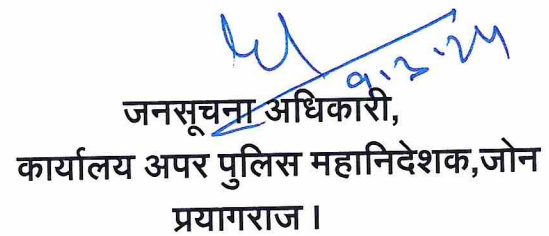 9.3.24
जनसूचना अधिकारी,
कार्यालय अपर पुलिस महानिदेशक,जोन
प्रयागराज।